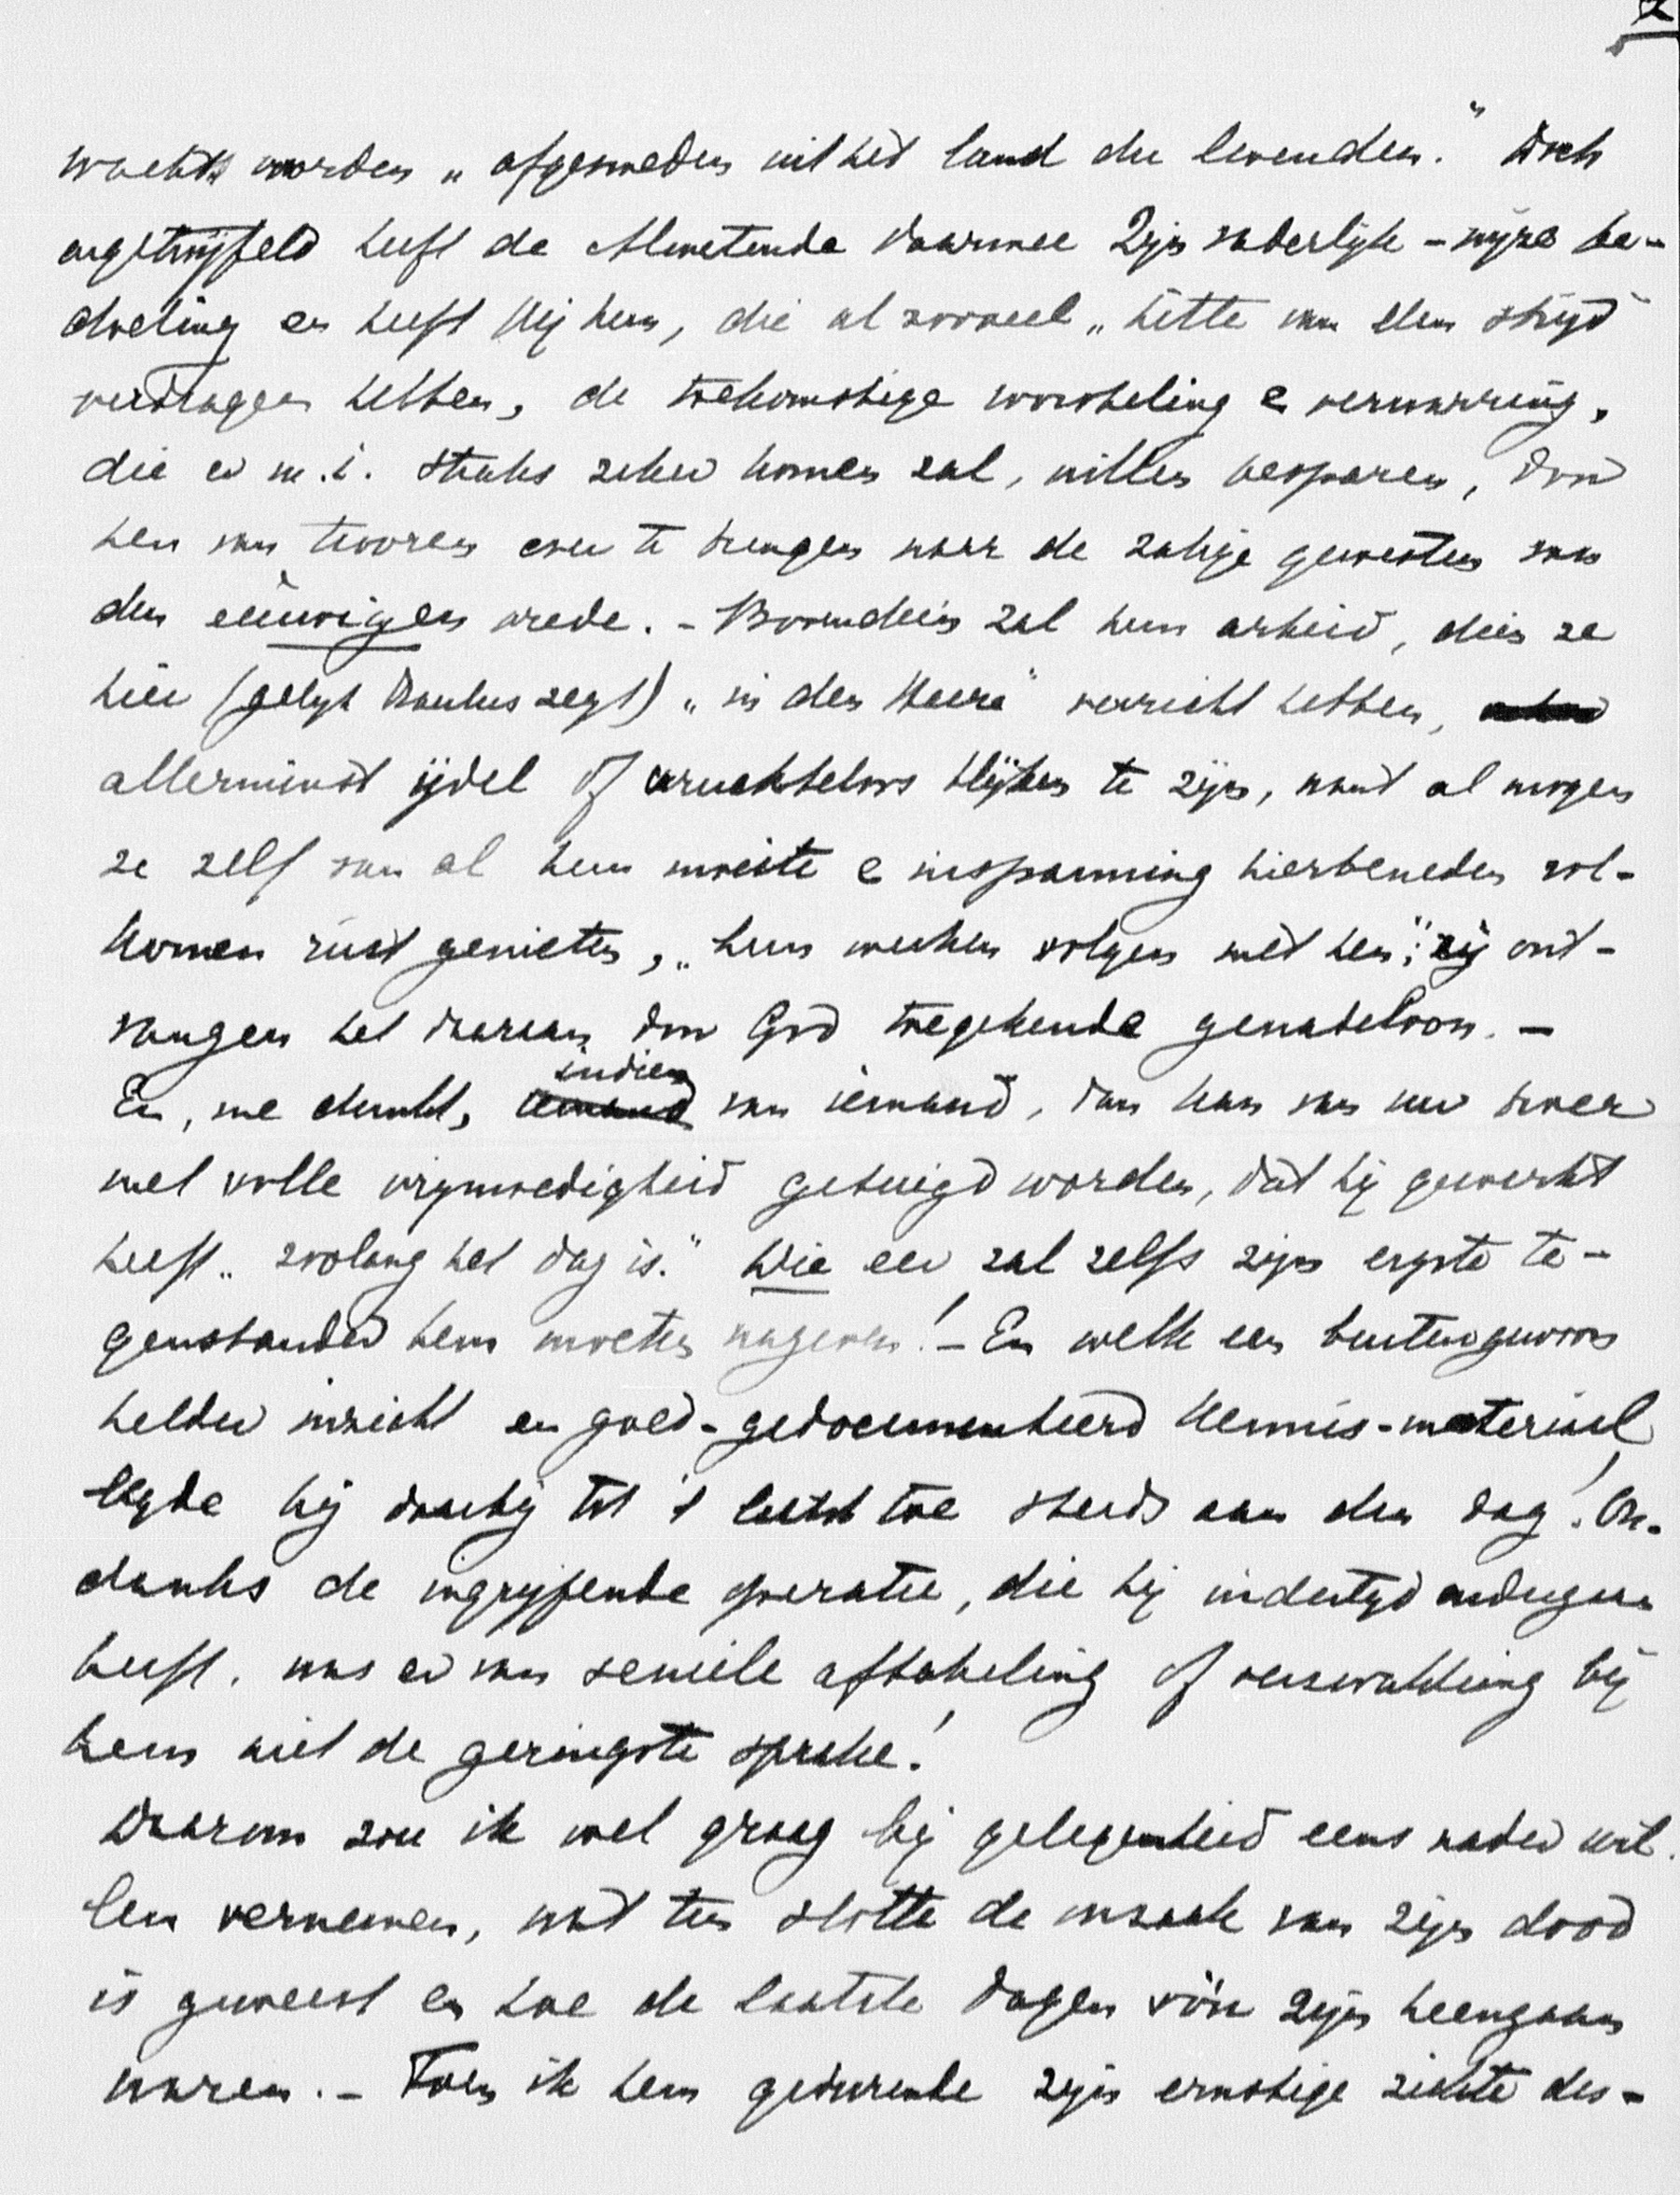 2
wacht worden „afgesneden uit het land der levenden." Doch
ongetwijfeld heeft de Alwetende daarmee Zijn vaderlijk-wijze be-
doeling en heeft Hij hen, die al zooveel „hitte van den strijd
verdragen hebben, de toekomstige worsteling en verwarring,
die er m.i. straks zeker komen zal, willen besparen, door
hen van tevoren over te brengen naar de zalige gewesten van
den eeuwigen vrede. – Bovendien zal hun arbeid, dien ze
hier (gelijk Paulus zegt) „in den Heere" verricht hebben,
allerminst ijdel of vruchteloos blijken te zijn, want al mogen
ze zelf van al hun moeite en inspanning hierbeneden vol-
komen rust genieten, „hun werken volgen met hen"; zij ont-
vangen het daaraan door God toegekende genadeloon. –
En, me dunkt, indien van iemand, dan kan van uw broer
met volle vrijmoedigheid getuigd worden, dat hij gewerkt
heeft „zoolang het dag is." Die eer zal zelfs zijn ergste te-
genstander hem moeten nageven! – En welk een buitengewoon
helder inzicht en goed-gedocumenteerd kennis-materiaal
legde hij daarbij tot 't laatst toe steeds aan den dag! On-
danks de ingrijpende operatie, die hij indertijd ondergaan
heeft, was er van seniele aftakeling of verzwakking bij
hem niet de geringste sprake!
Daarom zou ik wel graag bij gelegenheid eens nader wil-
len vernemen, wat ten slotte de oorzaak van zijn dood
is geweest en hoe de laatste dagen vóór zijn heengaan
waren. – Toen ik hem gedurende zijn ernstige ziekte des-